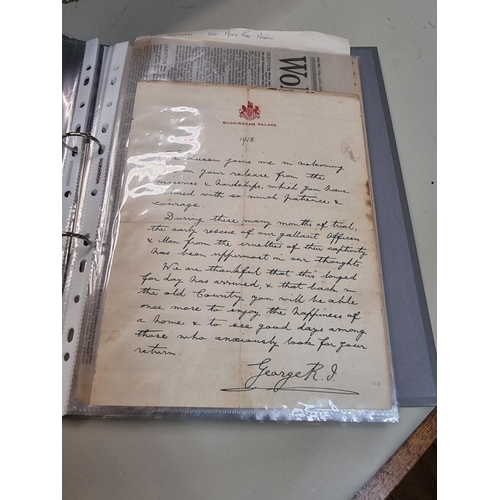 Wo
BUCKINGHAM PALACE
1918.
Queen joins me in welcoming
on your release from the
miseries & hardships, which you have
endured with so much patience &
courage.
During these many months of trial,
the early rescue of our gallant Officers
& Men from the cruelties of their captivity
has been uppermost in our thoughts.
We are thankful that this longed
for day has arrived, & that back in
the old Country you will be able
once more to enjoy the happiness of
a home & to see good days among
those who anxiously look for your
return.
George R.I.